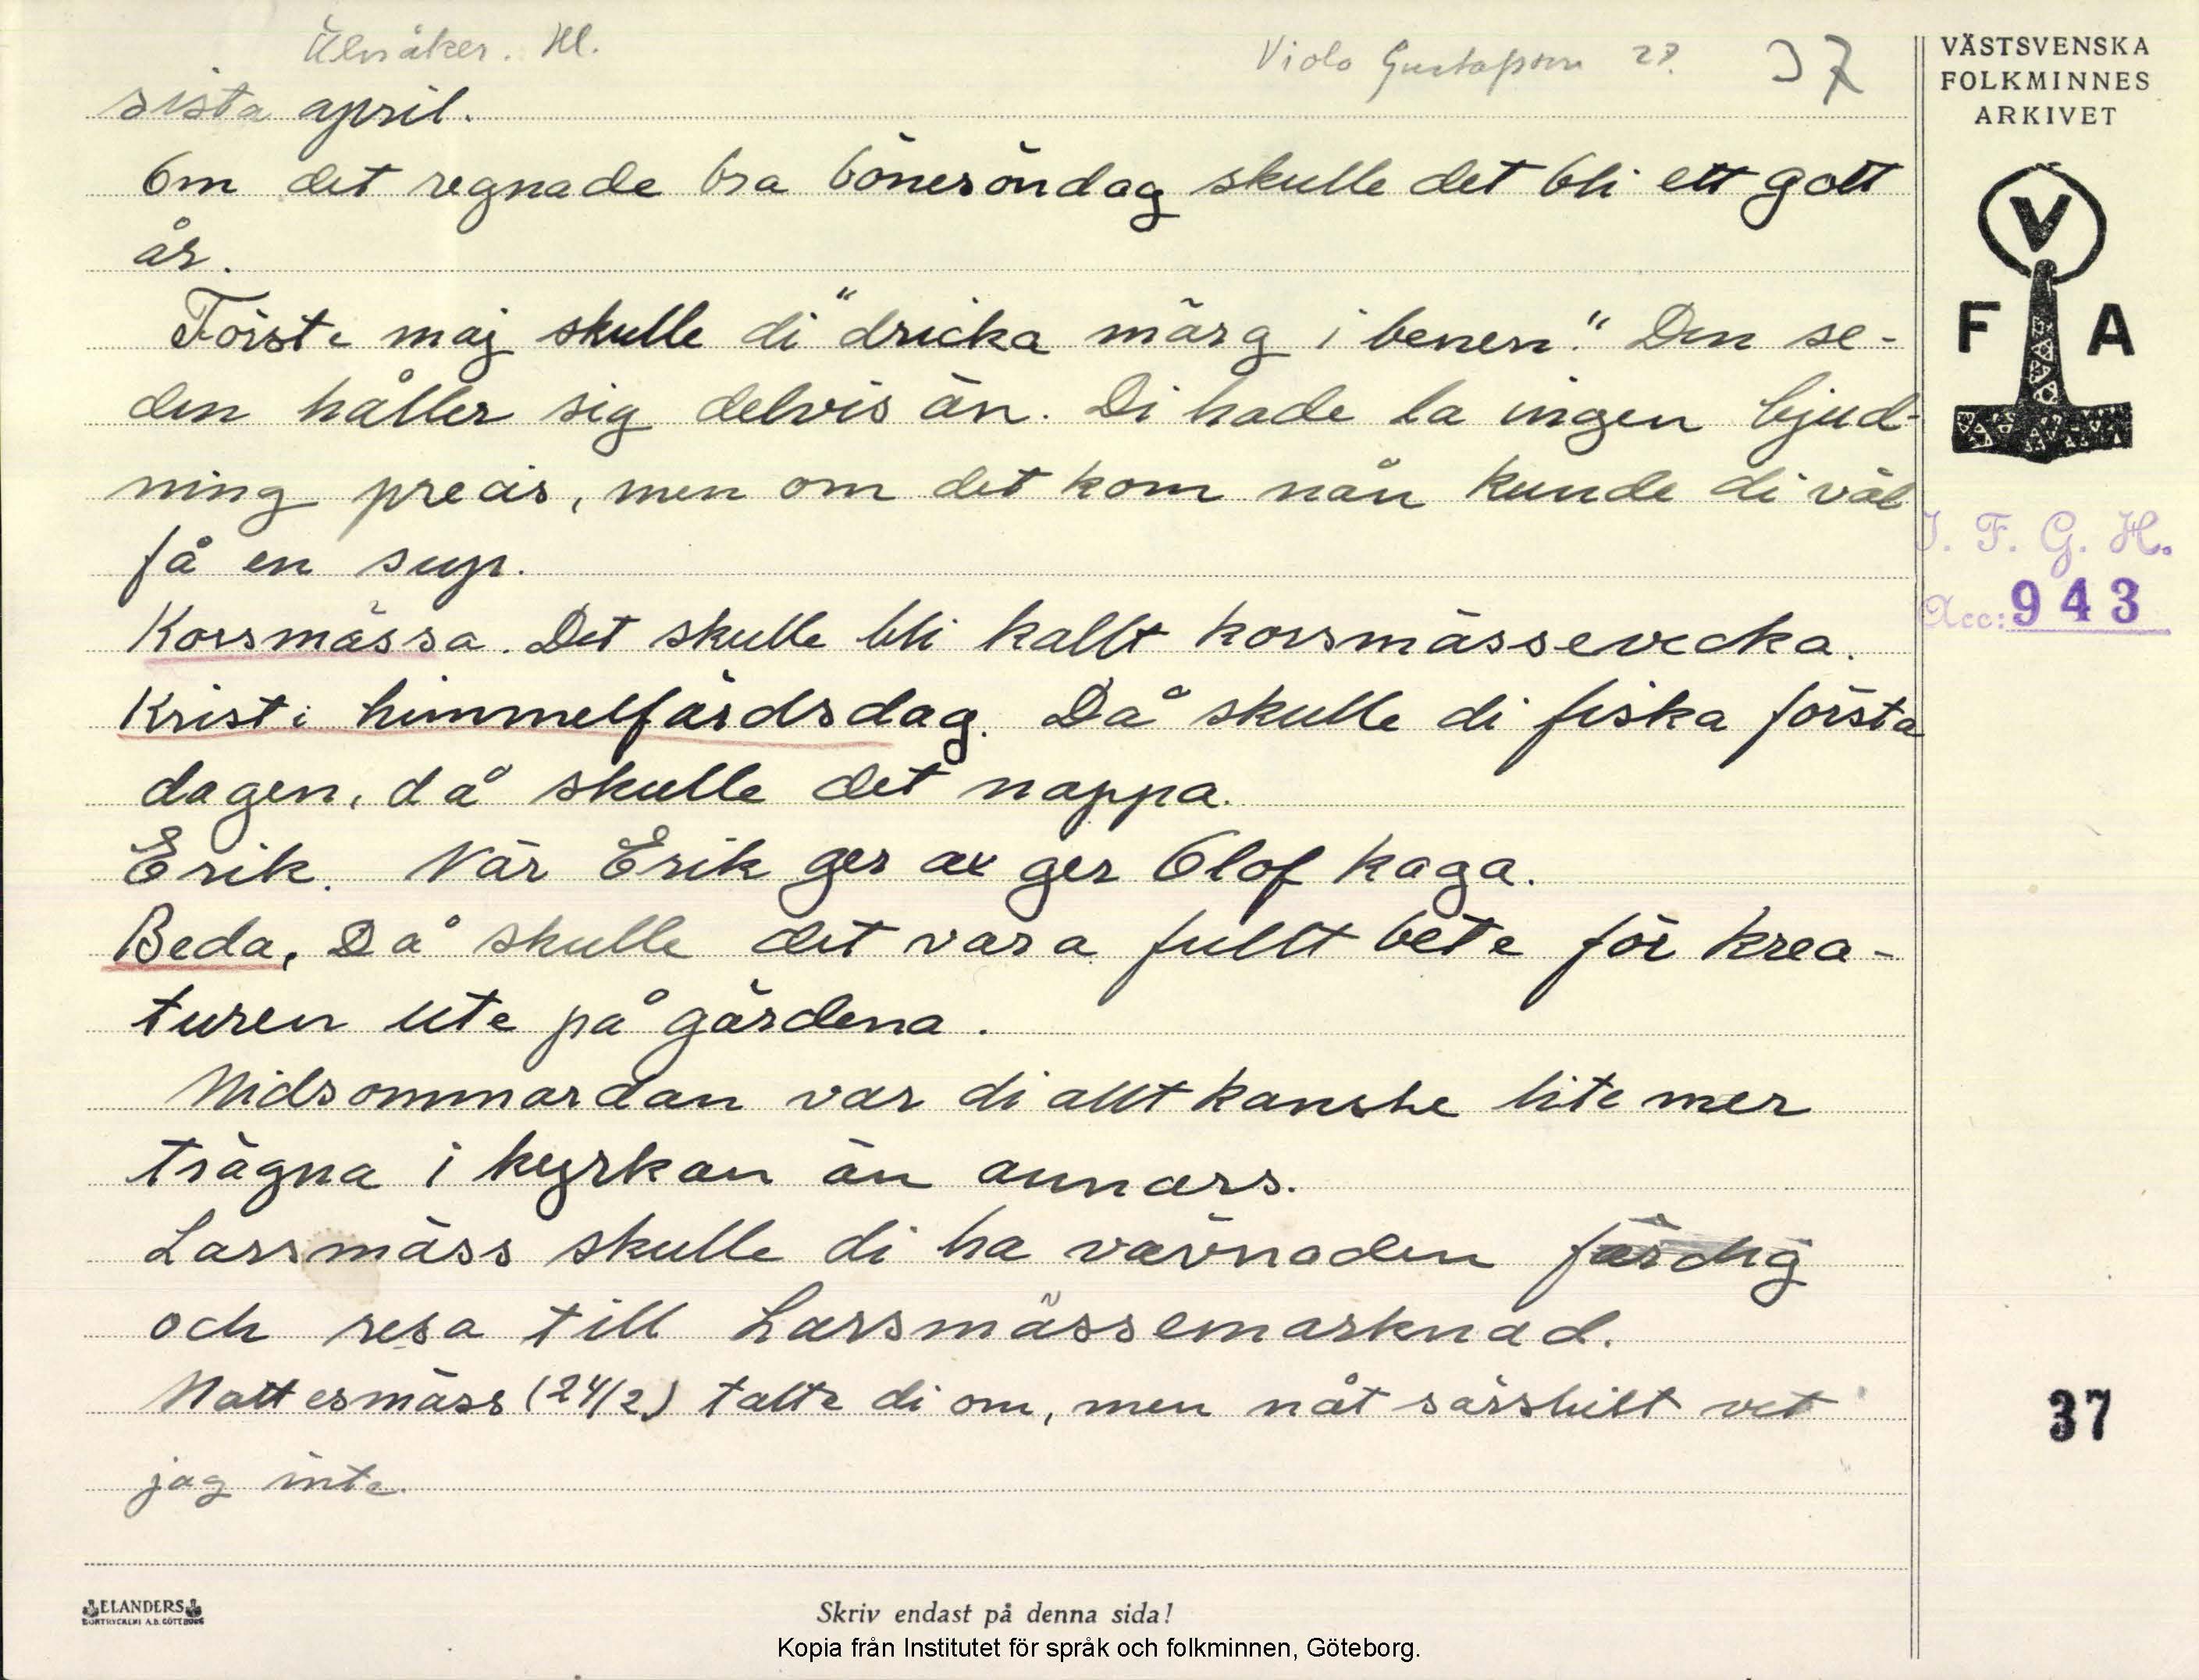 Älvsåker. Hl.
Viola Gustafsson 28. 37
sista april.
Om det regnade bra bönesöndag skulle det bli ett gott
år.
Först i maj skulle di "dricka märg i benen". Den se-
den håller sig delvis än. Di hade la ingen bjud-
ning precis, men om det kom nån kunde di väl
få en sup.
Korsmässa. Det skulle bli kallt korsmässevecka.
Kristi himmelfärdsdag. Då skulle di fiska första
dagen, då skulle det nappa.
Erik. När Erik ger ax ger Olof kaga.
Beda, Då skulle det vara fullt bete för krea-
turen ute på gärdena.
Midsommardan var di allt kanske lite mer
trägna i kyrkan än annars.
Larsmäss skulle di ha vävnaden färdig
och resa till Larsmässemarknad.
Mattesmäss (24/2) talte di om, men nåt särskilt vet
jag inte.
VÄSTSVENSKA
FOLKMINNES
ARKIVET
V
F A
I. F. G. H.
Acc: 943
37
ELANDERS
BOKTRYCKERI A.B. GÖTEBORG
Skriv endast på denna sida!
Kopia från Institutet för språk och folkminnen, Göteborg.